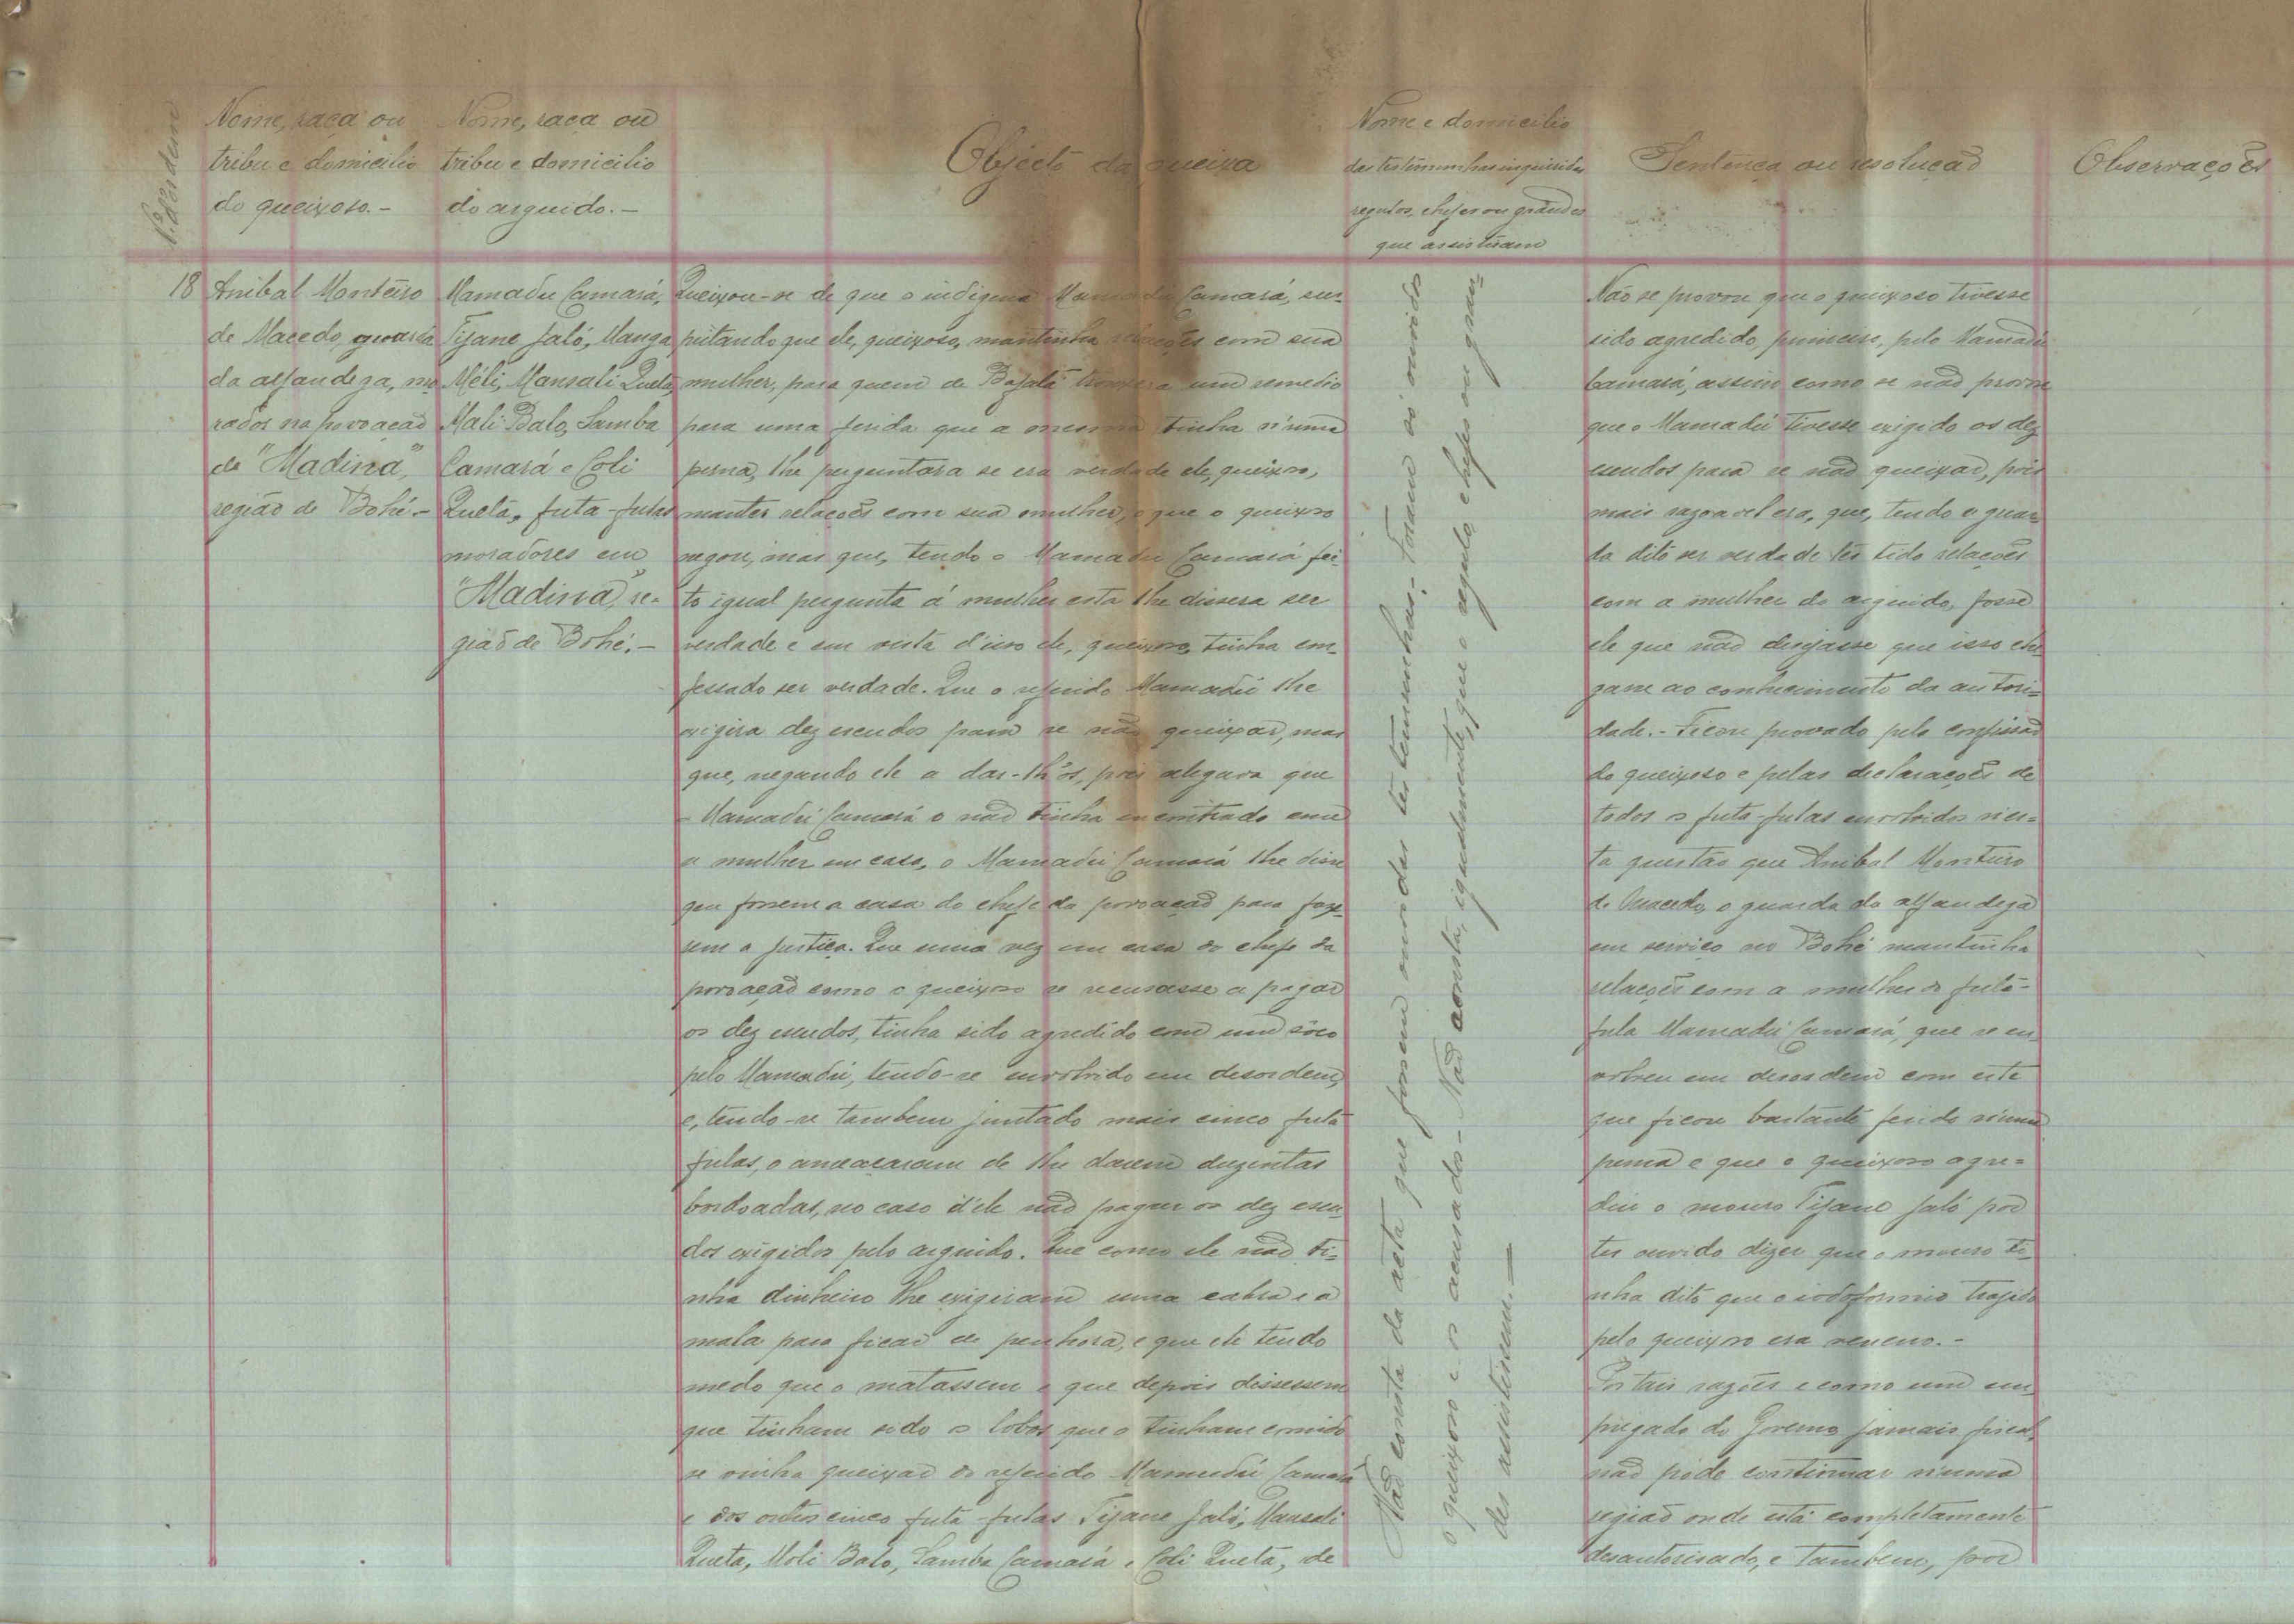 Nº d'ordem
Nome, raça ou
tribu e domicilio
do queixoso.-
Nome, raça ou
tribu e domicilio
do arguido.-
Objécto da queixa
Nome e domicilio
das testemunhas inquiridas
regulos, chefes ou grandes
que assistiram
Sentença ou resolução
Observações
18
Anibal Monteiro
de Macedo, guarda
da alfandega, mo-
rador na povoação
de "Madina",
região de Bohé.-
Mamadu Camará,
Tijane Jaló, Manga
Méli, Mansali Quetá,
Mali Balo, Samba
Camará e Coli
Quetá, futa-fulas
moradores em
"Madina", re-
gião de Bohé.-
Queixou-se de que o indigena Mamadú Camará, sus-
peitando que ele, queixoso, mantinha relações com sua
mulher, para quem de Bafatá trouxera um remedio
para uma ferida que a mesma tinha n'uma
perna, lhe perguntara se era verdade ele, queixoso,
manter relações com sua mulher, o que o queixoso
negou, mas que, tendo o Mamadu Camará fei-
to igual pergunta á mulher esta lhe dissera ser
verdade e em vista d'isso ele, queixoso, tinha con-
fessado ser verdade. Que o referido Mamadú lhe
exigira dez escudos para se não queixar, mas
que, negando ele a dar-lh'os, pois alegava que
o Mamadú Camará o não tinha encontrado com
a mulher em casa, o Mamadú Camará lhe disse
que fossem a casa do chefe da povoação para faze-
rem a justiça. Que uma vez em casa do chefe da
povoação como o queixoso se recusasse a pagar
os dez escudos, tinha sido agredido com um sôco
pelo Mamadú, tendo-se envolvido em desordem,
e, tendo-se tambem juntado mais cinco futa-
fulas, o ameaçaram de lhe darem duzentas
bordoadas, no caso d'ele não pagar os dez escu-
dos exigidos pelo arguido. Que como ele não ti-
nha dinheiro lhe exigiram uma cabra e a
mala para ficar de penhora, e que ele tendo
medo que o matassem e que depois dissessem
que tinham sido os lobos que o tinham comido
se vinha queixar do referido Mamadú Camará
e dos outros cinco futa-fulas Tijane Jaló, Mansali
Queta, Moli Balo, Samba Camará e Coli Quetá, de
Não consta da acta que fossem ouvidas testemunhas.- Foram só ouvidos
o queixoso e os acusados.- Não consta, igualmente, que o regulo, chefes ou gran-
des assistissem.-
Não se provou que o queixoso tivesse
sido agredido, primeiro, pelo Mamadú
Camará, assim como se não provou
que o Mamadú tivesse exigido os dez
escudos para se não queixar, pois
mais razoavel era, que, tendo o guar-
da dito ser verdade ter tido relações
com a mulher do arguido, fosse
ele que não desejasse que isso che-
gasse ao conhecimento da autori-
dade.- Ficou provado pela confissão
do queixoso e pelas declarações de
todos os futa-fulas envolvidos n'es-
ta questão que Anibal Monteiro
de Macedo, o guarda da alfandega
em serviço no Bohé mantinha
relações com a mulher do futa-
fula Mamadú Camará, que se en-
volveu em desordem com este
que ficou bastante ferido n'uma
perna e que o queixoso agre-
diu o mouro Tijane Jaló por
ter ouvido dizer que o mouro ti-
nha dito que o iodoformio trazido
pelo queixoso era veneno.-
Por tais razões e como um em-
pregado do Governo, jamais fiscal,
não póde continuar n'uma
região onde está completamente
desautorisado, e tambem, por